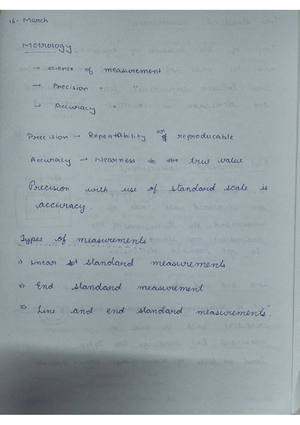 16 - March
Metrology
→ science of measurement
→ Precision "
↳ Accuracy "
Precision → Repeatability or reproducable
Accuracy → Nearness to the true value
Precision with use of standard scale is
accuracy.
Types of measurements
1) Linear standard measurements
2) End standard measurement
3) Line and end standard measurements.